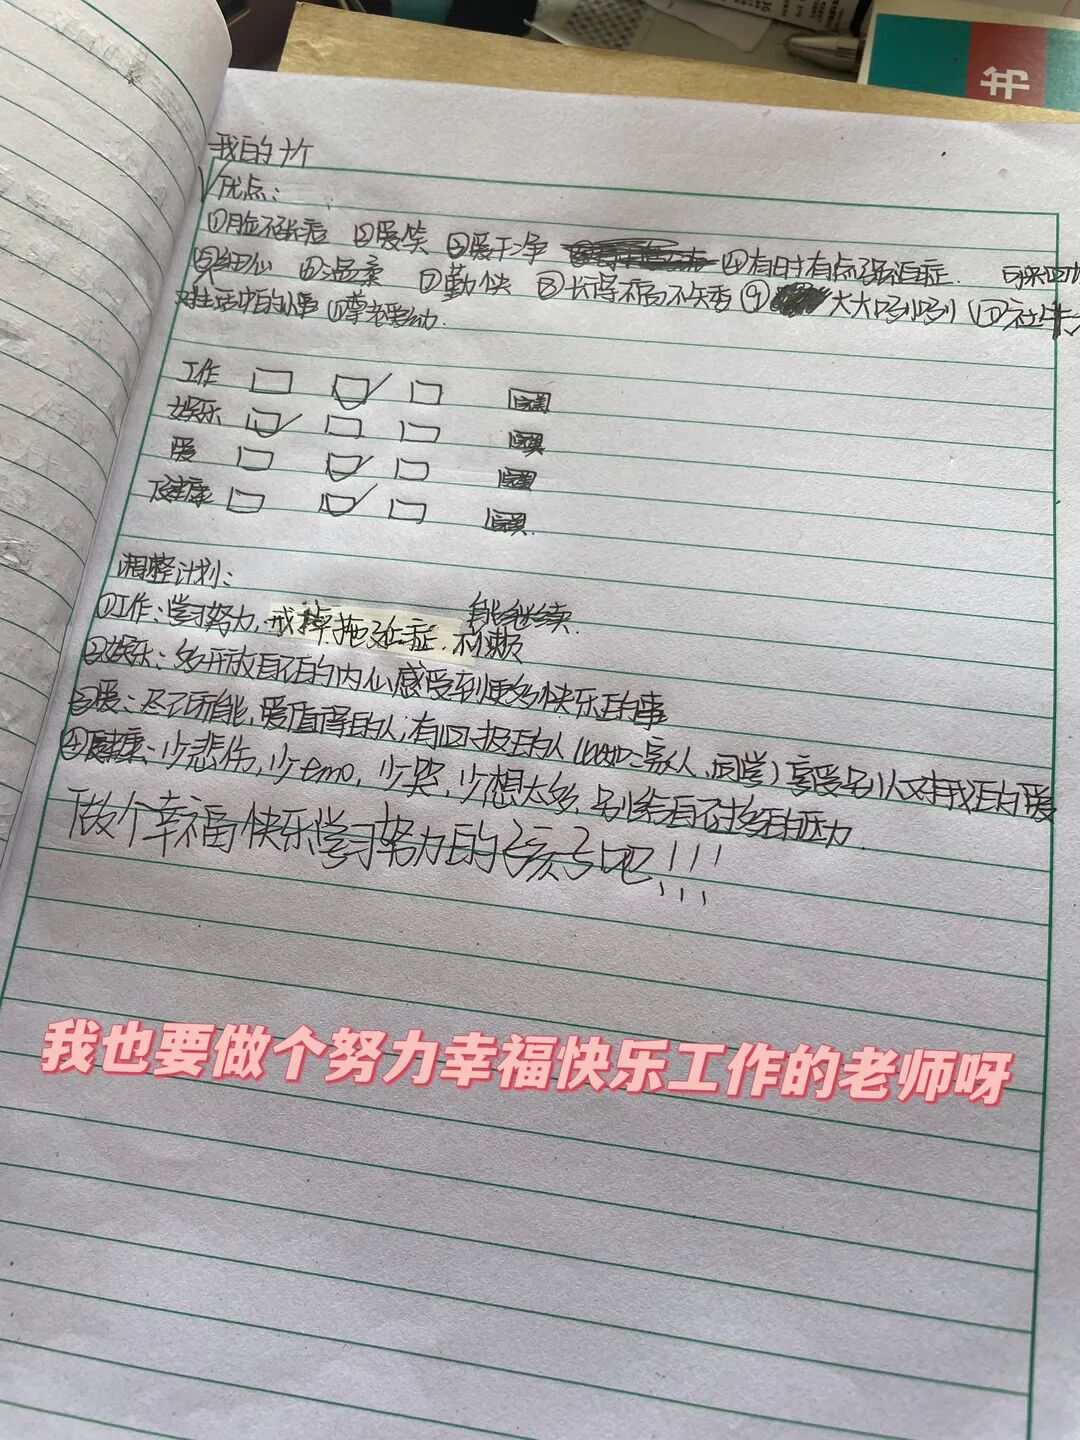 书
我的十个
优点:
①脸不长痘 ②爱笑 ③爱干净 ④有时有点强迫症.
⑤细心 ⑥温柔 ⑦勤快 ⑧长得不高不矮 ⑨大大咧咧 ⑩社牛
对生活中的小事 尊老爱幼.
工作
娱乐
爱
健康
调整计划:
①工作:学习努力,戒掉拖延症.不懒 能继续.
②娱乐:多开放自己的内心感受到更多快乐的事
③爱:尽己所能,爱值得的人,有回报的人(比如:家人,同学)享受别人对我的爱
④健康:少悲伤,少emo,少哭,少想太多,别给自己太多的压力.
做个幸福快乐学习努力的孩子吧!!!
我也要做个努力幸福快乐工作的老师呀